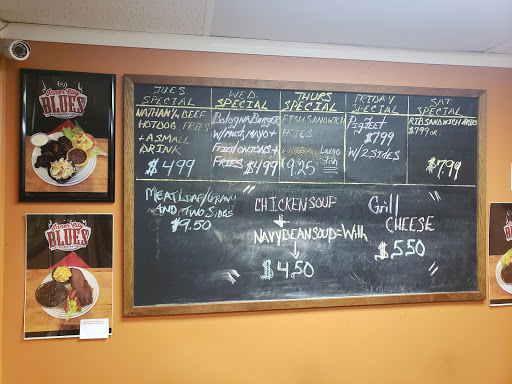 TUES SPECIAL
NATHAN'S BEEF
HOTDOG FRIES
+ A SMALL
DRINK
$4.99
WED. SPECIAL
Bologna Burger
w/must, mayo +
Fried onions +
FRIES $4.99
THURS SPECIAL
FISH SANDWICH
FRIES
$9.25 Large Fish
FRIDAY SPECIAL
Pig FEET
$7.99
W/2 SIDES
SAT. SPECIAL
RIB SANDWICH
$7.99
$7.99
MEATLOAF/GRAVY
AND TWO SIDES
$9.50
"CHICKEN SOUP"
+
NAVY BEAN SOUP = With
$4.50
Grill
CHEESE
$5.50
BLUES
BLUES